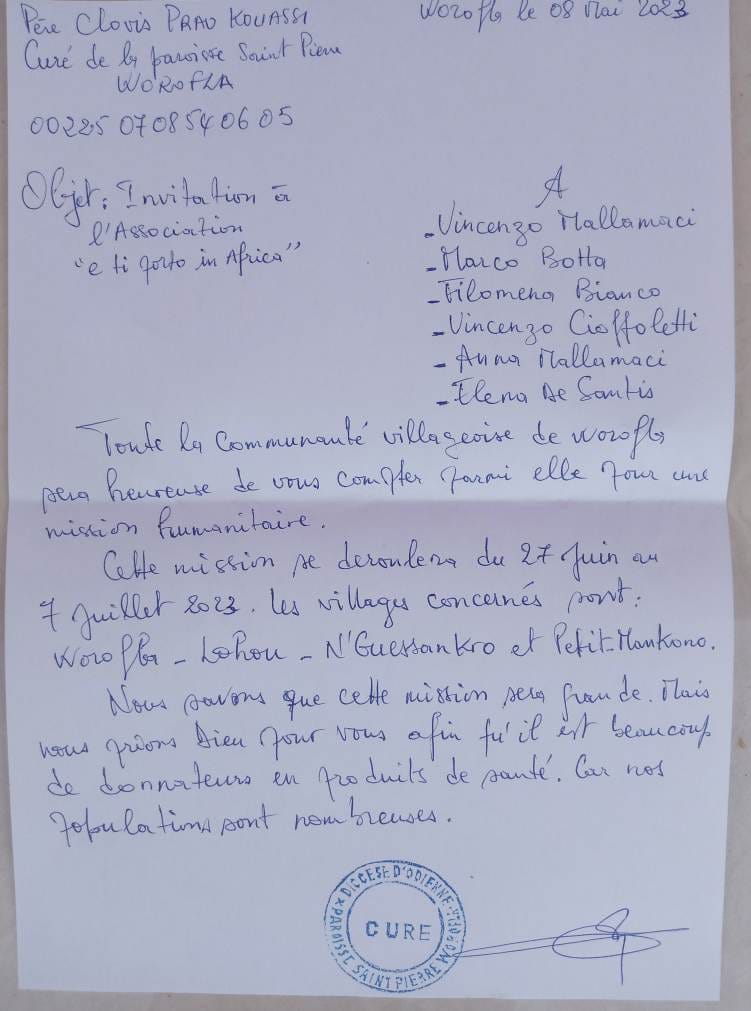 Père Clovis PRAO KOUASSI
Worofla le 08 Mai 2023
Curé de la paroisse Saint Pierre
WOROFLA
00225 0708540605
Objet: Invitation à
l'Association
"e ti porto in Africa"
A
- Vincenzo Mallamaci
- Marco Botta
- Filomena Bianco
- Vincenzo Cioffoletti
- Anna Mallamaci
- Elena De Santis
Toute la Communauté villageoise de Worofla
sera heureuse de vous compter parmi elle pour une
mission humanitaire.
Cette mission se deroulera du 27 Juin au
7 Juillet 2023. Les villages concernés sont:
Worofla - Lohou - N'Guessankro et Petit-Mankono.
Nous savons que cette mission sera grande. Mais
nous prions Dieu pour vous afin qu'il est beaucoup
de donnateurs en produits de santé. Car nos
populations sont nombreuses.
DIOCESE D'ODIENNE
PAROISSE SAINT PIERRE WOROFLA
CURE